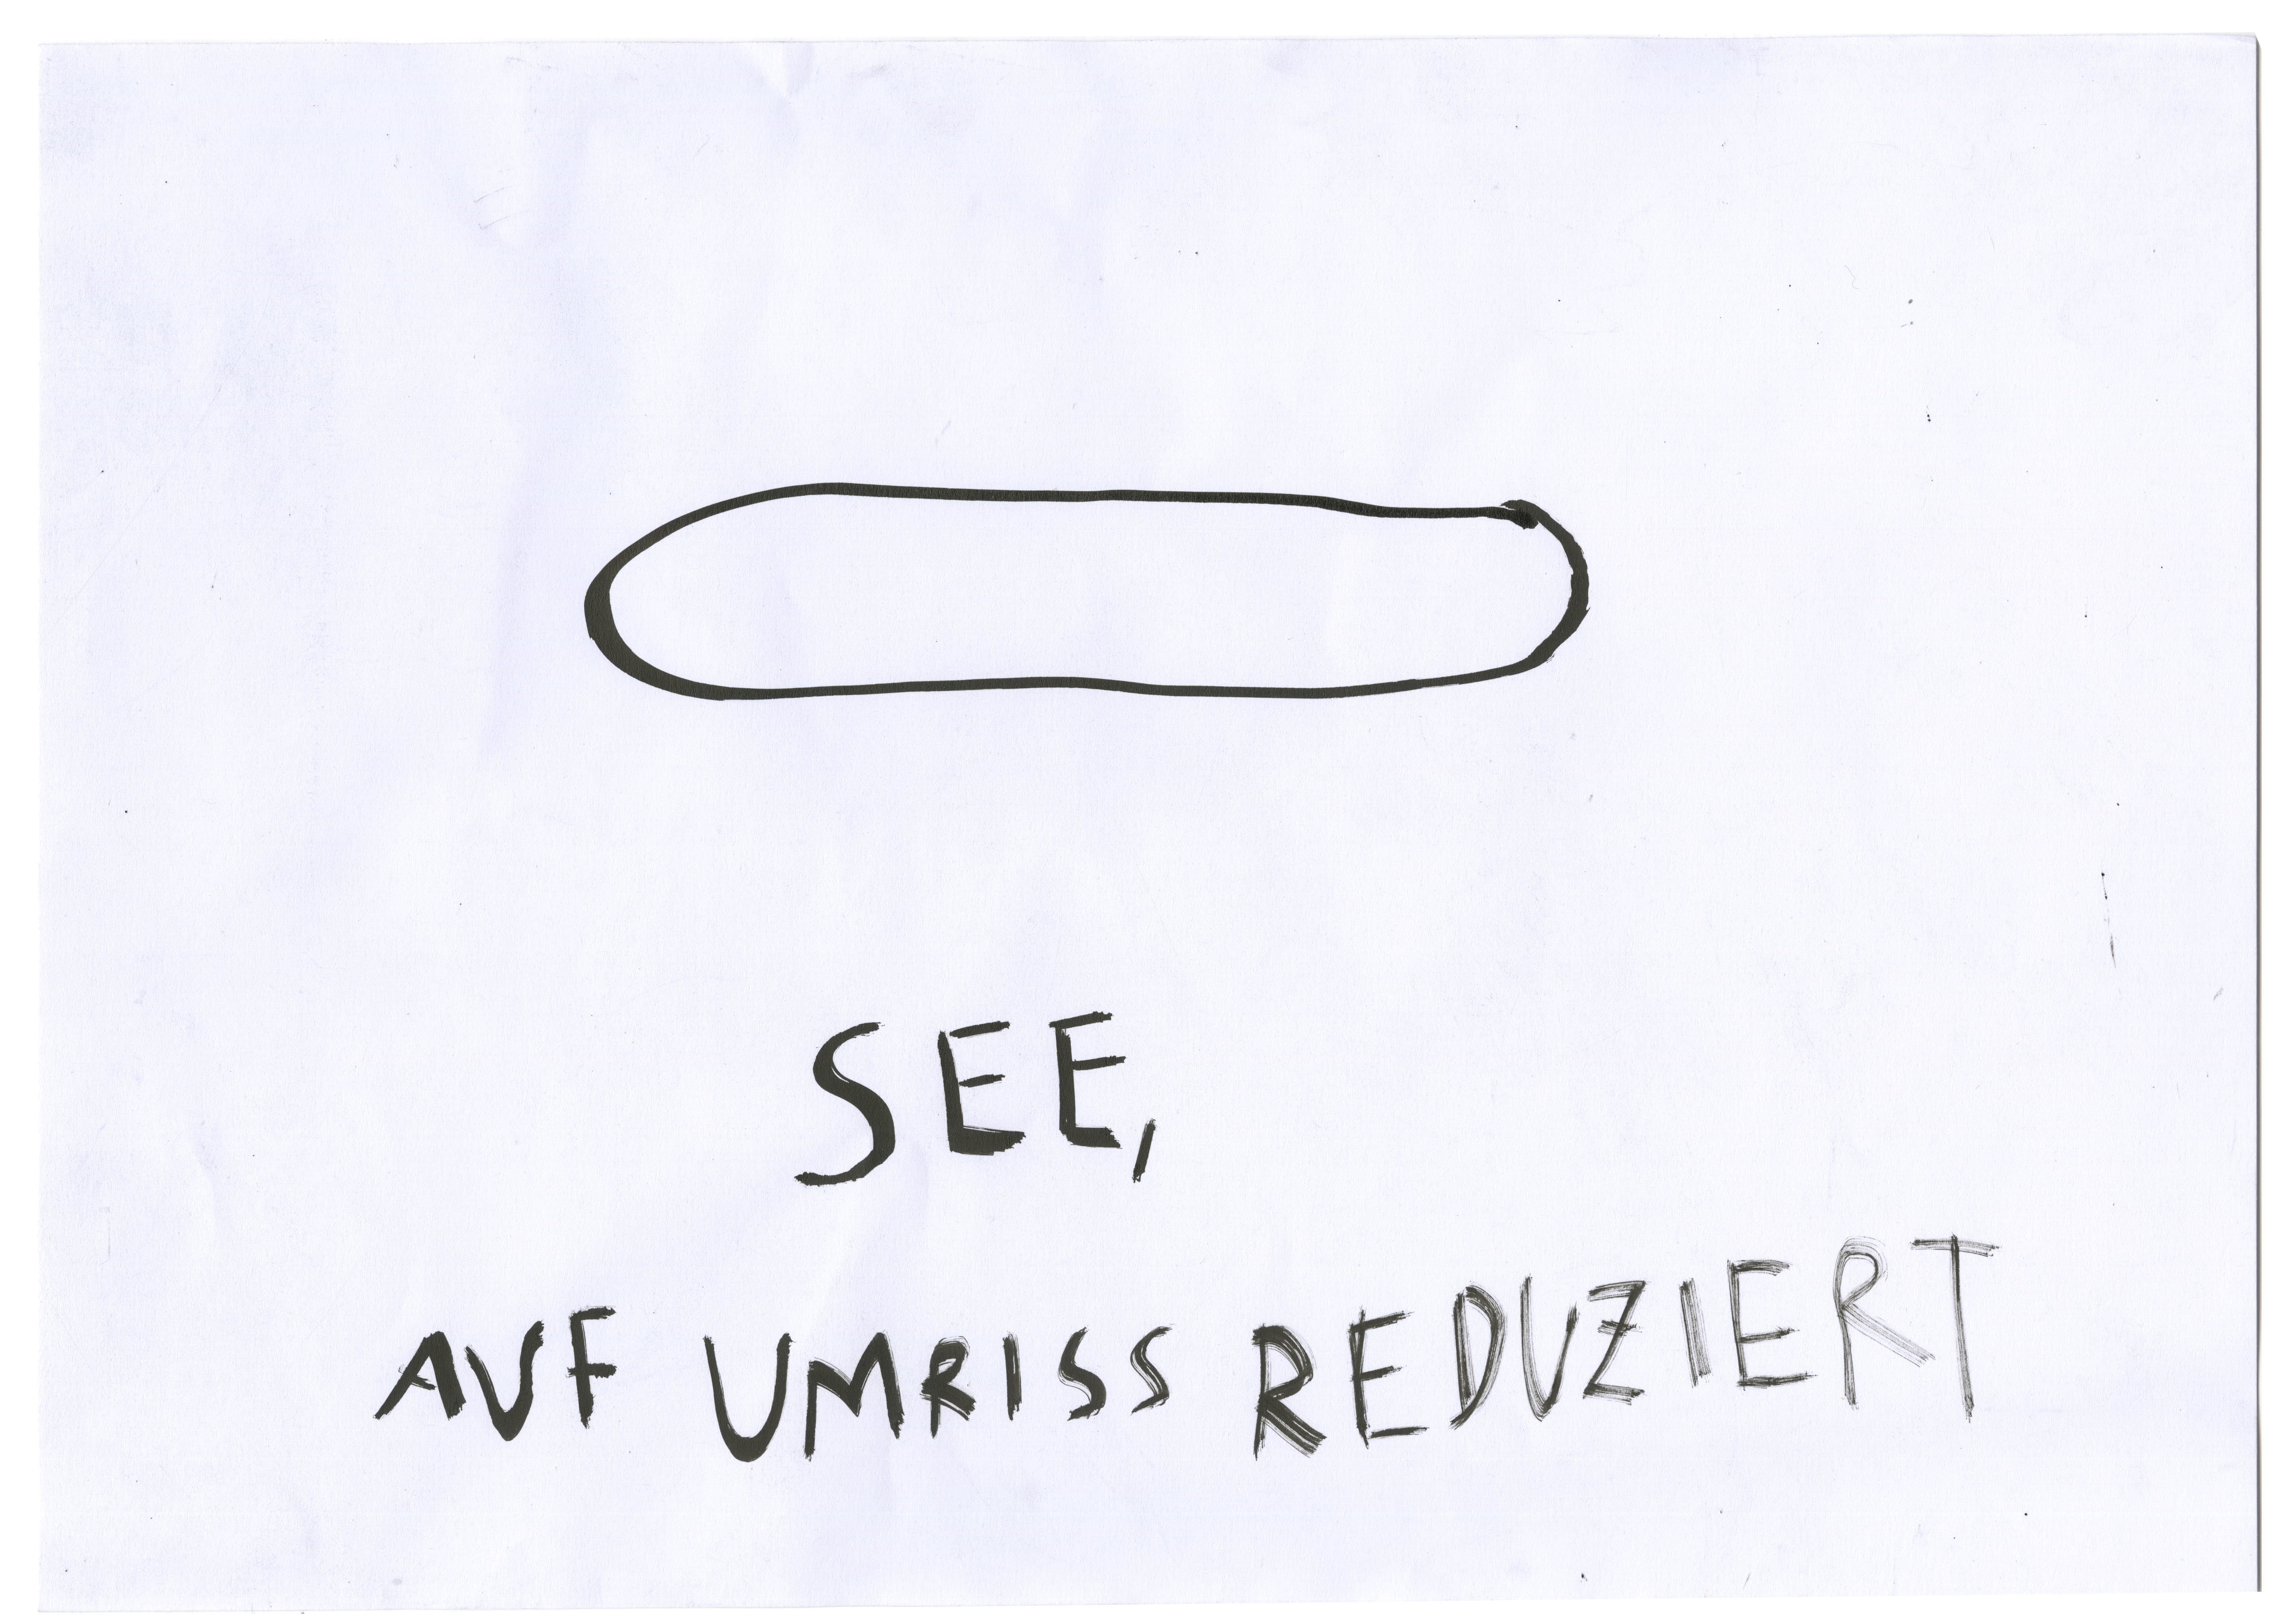 SEE,
AUF UMRISS REDUZIERT